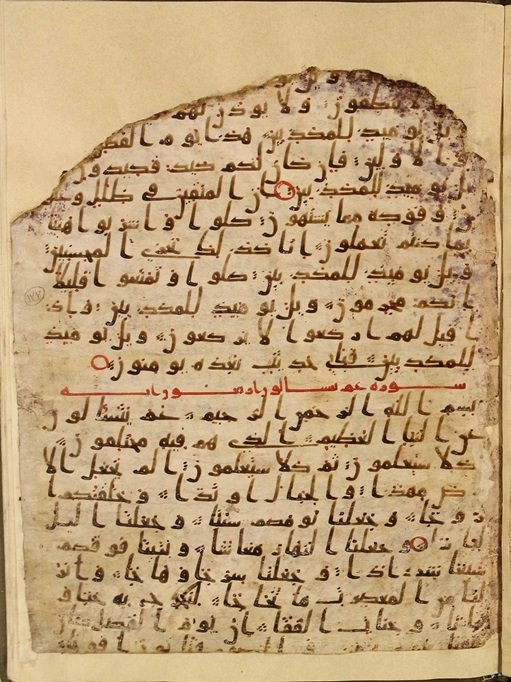 و يو
ينطقون ولا يوذن لهم
ويل يوميذ للمكذبين هذا يوم الفصل
والاولين فان كان لكم كيد فكيدو
ويل يوميذ للمكذبين ان المتقين في ظلل وعيو
ن وفوكه مما يشتهون كلوا واشربوا هنيا
بما كنتم تعملون انا كذلك نجزي المحسنين
ويل يوميذ للمكذبين كلوا وتمتعوا قليلا
انكم مجرمون ويل يوميذ للمكذبين واذا
قيل لهم اركعوا لا يركعون ويل يوميذ
للمكذبين فباي حديث بعده يومنون
سورة عم يتسالون
بسم الله الرحمن الرحيم عم يتسالون
عن النبا العظيم الذي هم فيه مختلفون
كلا سيعلمون ثم كلا سيعلمون الم نجعل الا
رض مهدا والجبال اوتدا وخلقنكم ا
زوجا وجعلنا نومكم سبتا وجعلنا اليل
لباسا وجعلنا النهار معاشا وبنينا فوقكم
سبعا شدادا وجعلنا سراجا وهاجا وانز
لنا من المعصرت ما ثجاجا لنخرج به حبا و
نباتا وجنت الفافا ان يوم الفصل كان
١٧٢